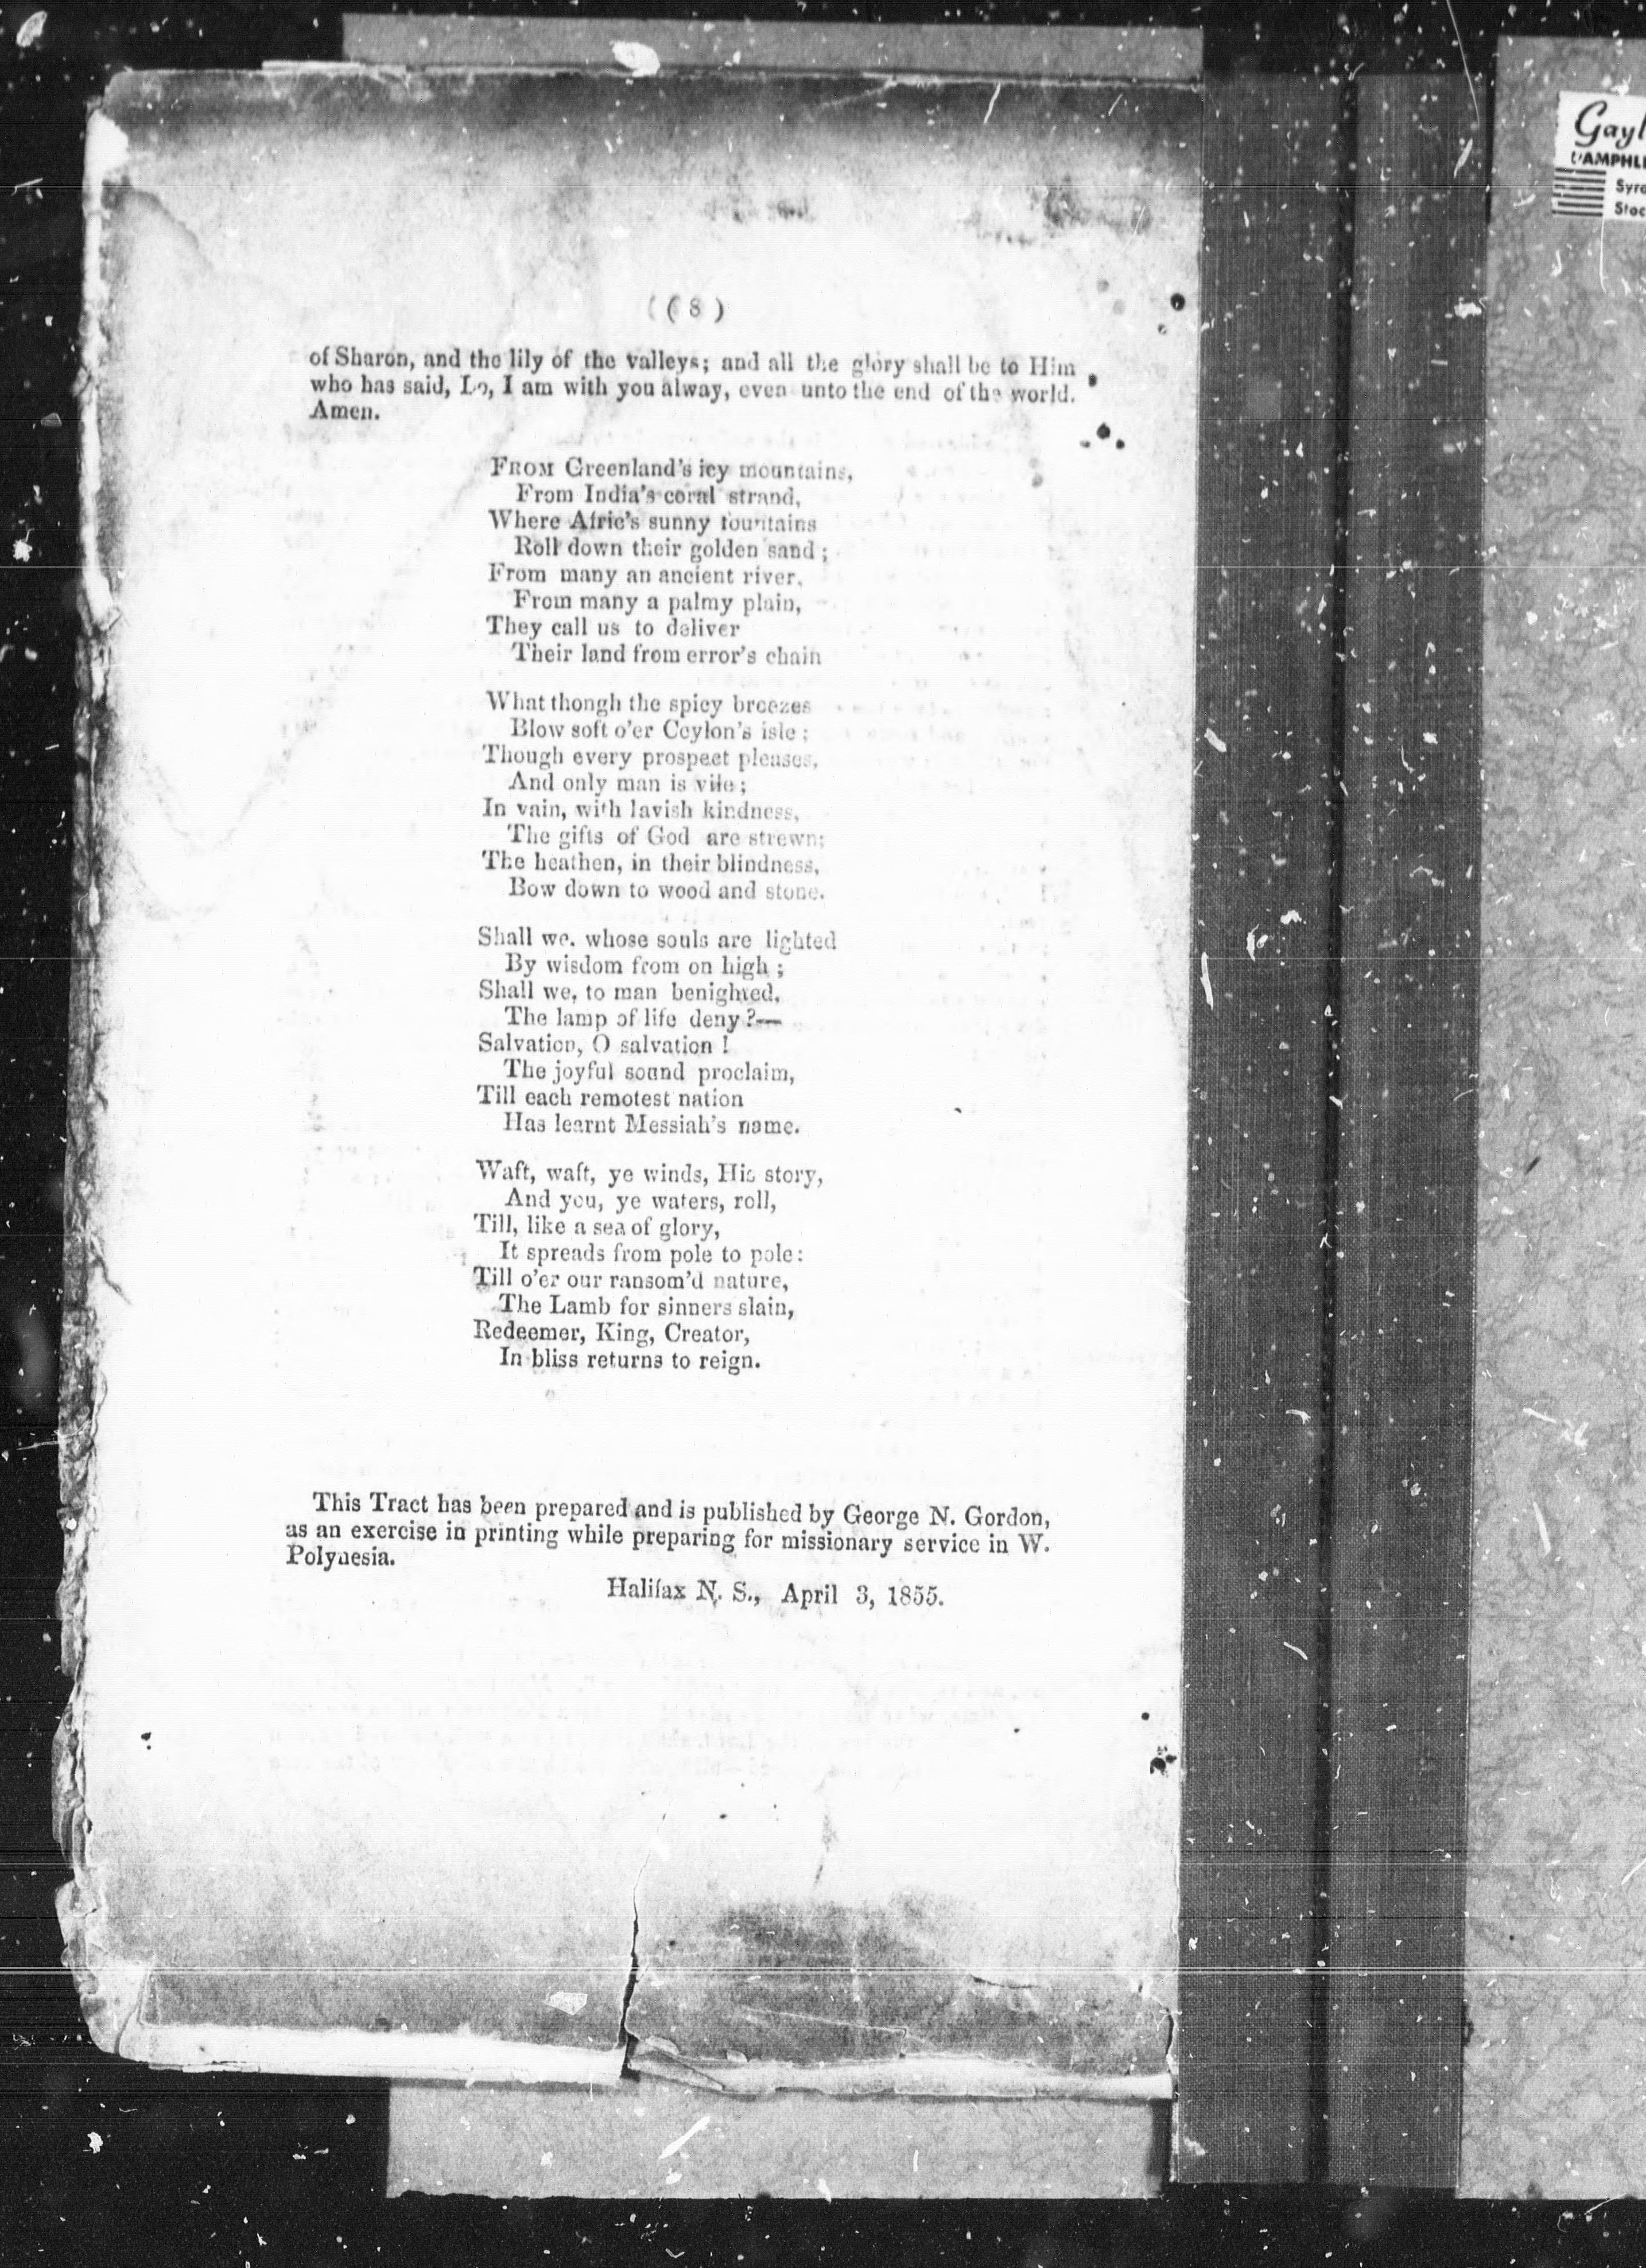 ( ( 8 )
of Sharon, and the lily of the valleys; and all the glory shall be to Him
who has said, Lo, I am with you alway, even unto the end of the world.
Amen.
FROM Greenland's icy mountains,
From India's coral strand,
Where Afric's sunny fountains
Roll down their golden sand ;
From many an ancient river,
From many a palmy plain,
They call us to deliver
Their land from error's chain
What thongh the spicy breezes
Blow soft o'er Ceylon's isle ;
Though every prospect pleases,
And only man is vile ;
In vain, with lavish kindness,
The gifts of God are strewn;
The heathen, in their blindness,
Bow down to wood and stone.
Shall we. whose souls are lighted
By wisdom from on high ;
Shall we, to man benighted,
The lamp of life deny ?—
Salvation, O salvation !
The joyful sound proclaim,
Till each remotest nation
Has learnt Messiah's name.
Waft, waft, ye winds, His story,
And you, ye waters, roll,
Till, like a sea of glory,
It spreads from pole to pole:
Till o'er our ransom'd nature,
The Lamb for sinners slain,
Redeemer, King, Creator,
In bliss returns to reign.
This Tract has been prepared and is published by George N. Gordon,
as an exercise in printing while preparing for missionary service in W.
Polynesia.
Halifax N. S., April 3, 1855.
Gayl
PAMPHL
Syra
Stoc